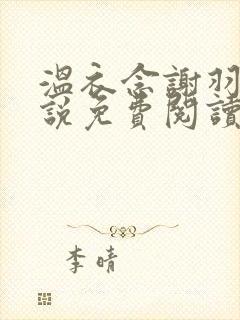 溫衣念謝羽
說免費閱讀
李晴